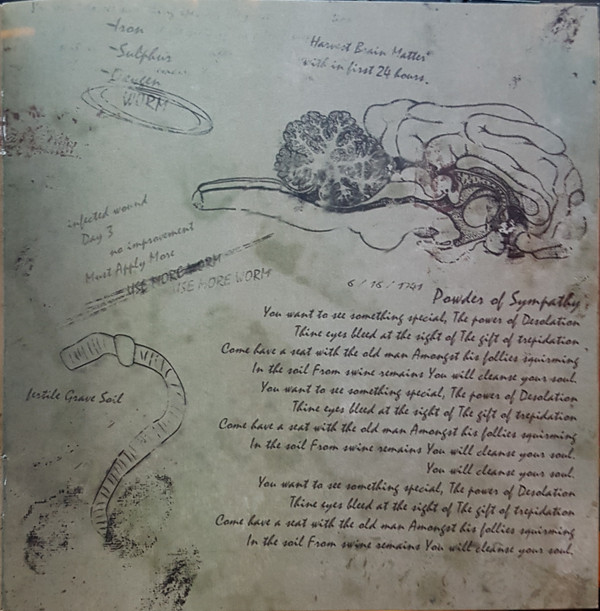 -Iron
-Sulphur
WORM
"Harvest Brain Matter"
with in first 24 hours.
infected wound
Day 3
no improvement
Must Apply More
USE MORE WORM
USE MORE WORM
fertile Grave Soil
6 / 16 / 1741
Powder of Sympathy
You want to see something special, The power of Desolation
Thine eyes bleed at the sight of The gift of trepidation.
Come have a seat with the old man Amongst his follies squirming
In the soil From swine remains You will cleanse your soul.
You want to see something special, The power of Desolation
Thine eyes bleed at the sight of The gift of trepidation
Come have a seat with the old man Amongst his follies squirming
In the soil From swine remains You will cleanse your soul.
You will cleanse your soul.
You want to see something special, The power of Desolation
Thine eyes bleed at the sight of The gift of trepidation
Come have a seat with the old man Amongst his follies squirming
In the soil From swine remains You will cleanse your soul.